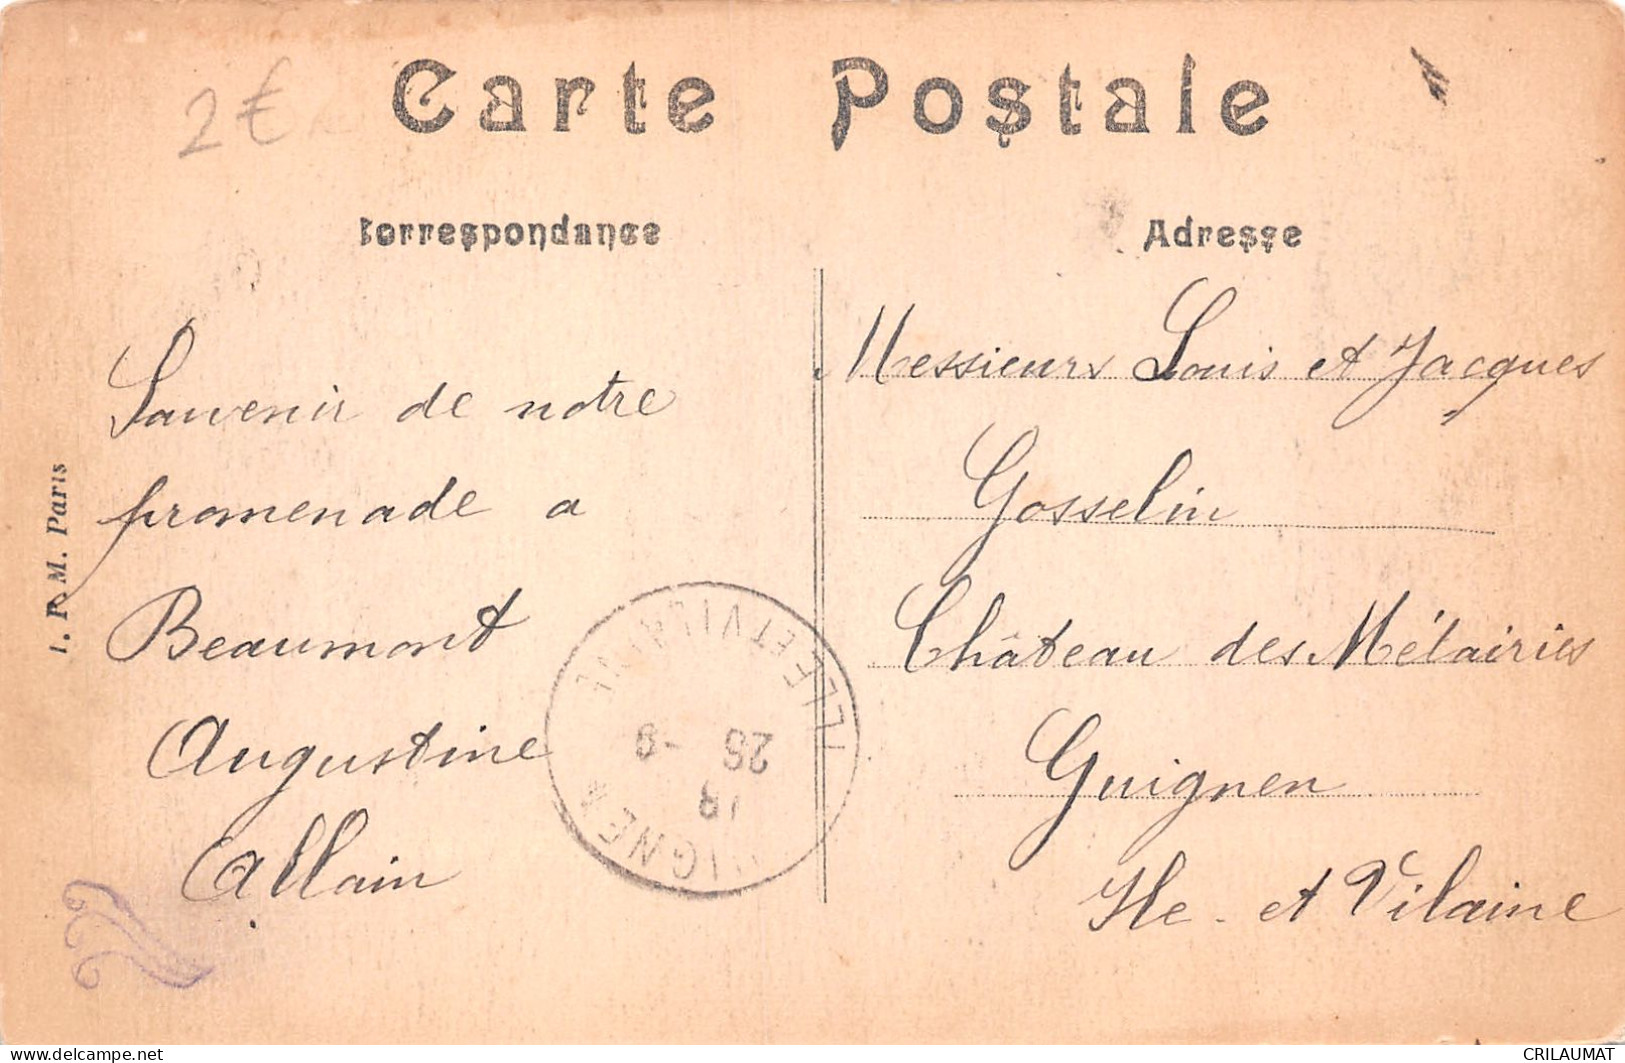 2€
Carte Postale
Correspondance
Adresse
Souvenir de notre
promenade a
Beaumont
Augustine
Allain
Messieurs Louis et Jacques
Gosselin
Château des Métairies
Guignen
Ille-et Vilaine
I. P. M. Paris
ILLE-ET-VILAINE
25 -9
18
delcampe.net
CRILAUMAT